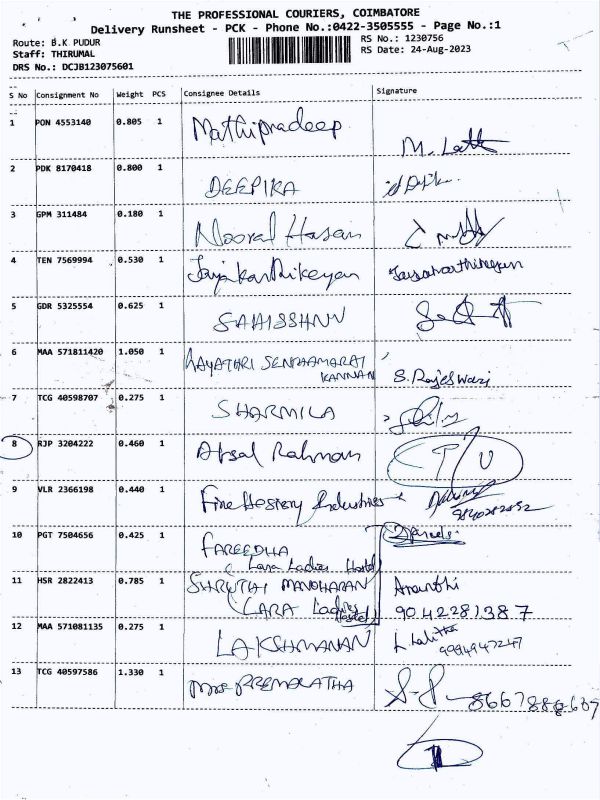 THE PROFESSIONAL COURIERS, COIMBATORE
Delivery Runsheet - PCK - Phone No.:0422-3505555 - Page No.:1
Route: B.K PUDUR
Staff: THIRUMAL
DRS No.: DCJB123075601
RS No.: 1230756
RS Date: 24-Aug-2023
S No Consignment No Weight PCS Consignee Details Signature
1 PON 4553140 0.805 1 Mathipradeep
2 PDK 8170418 0.800 1 DEEPIKA
3 GPM 311484 0.180 1 Nooral Hasan
4 TEN 7569994 0.530 1 Jayakarthikeyan Jayakarthikeyan
5 GDR 5325554 0.625 1
6 MAA 571811420 1.050 1 GAYATHRI SENTHAMARAI
KANNAN S. Rajeswari
7 TCG 40598707 0.275 1 SHARMILA
8 RJP 3204222 0.460 1 Absal Rahman T/U
9 VLR 2366198 0.440 1 Fine Hosiery Industries
10 PGT 7504656 0.425 1 FAREEDHA
(Lara Ladies Hostel) 2 parcels
11 HSR 2822413 0.785 1 SHRUTHI MANOHARAN Ananthi
(LARA Ladies Hostel) 9042281387
12 MAA 571081135 0.275 1 LAKSHMANAN L. Lalitha
9994947247
13 TCG 40597586 1.330 1 Mrs PREMALATHA